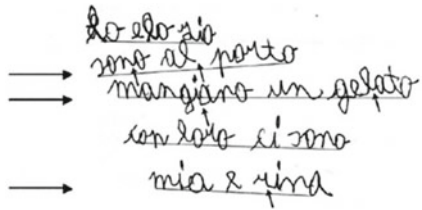 elo zio
sono al porto
mangiano un gelato
con loro ci sono
mia e rina